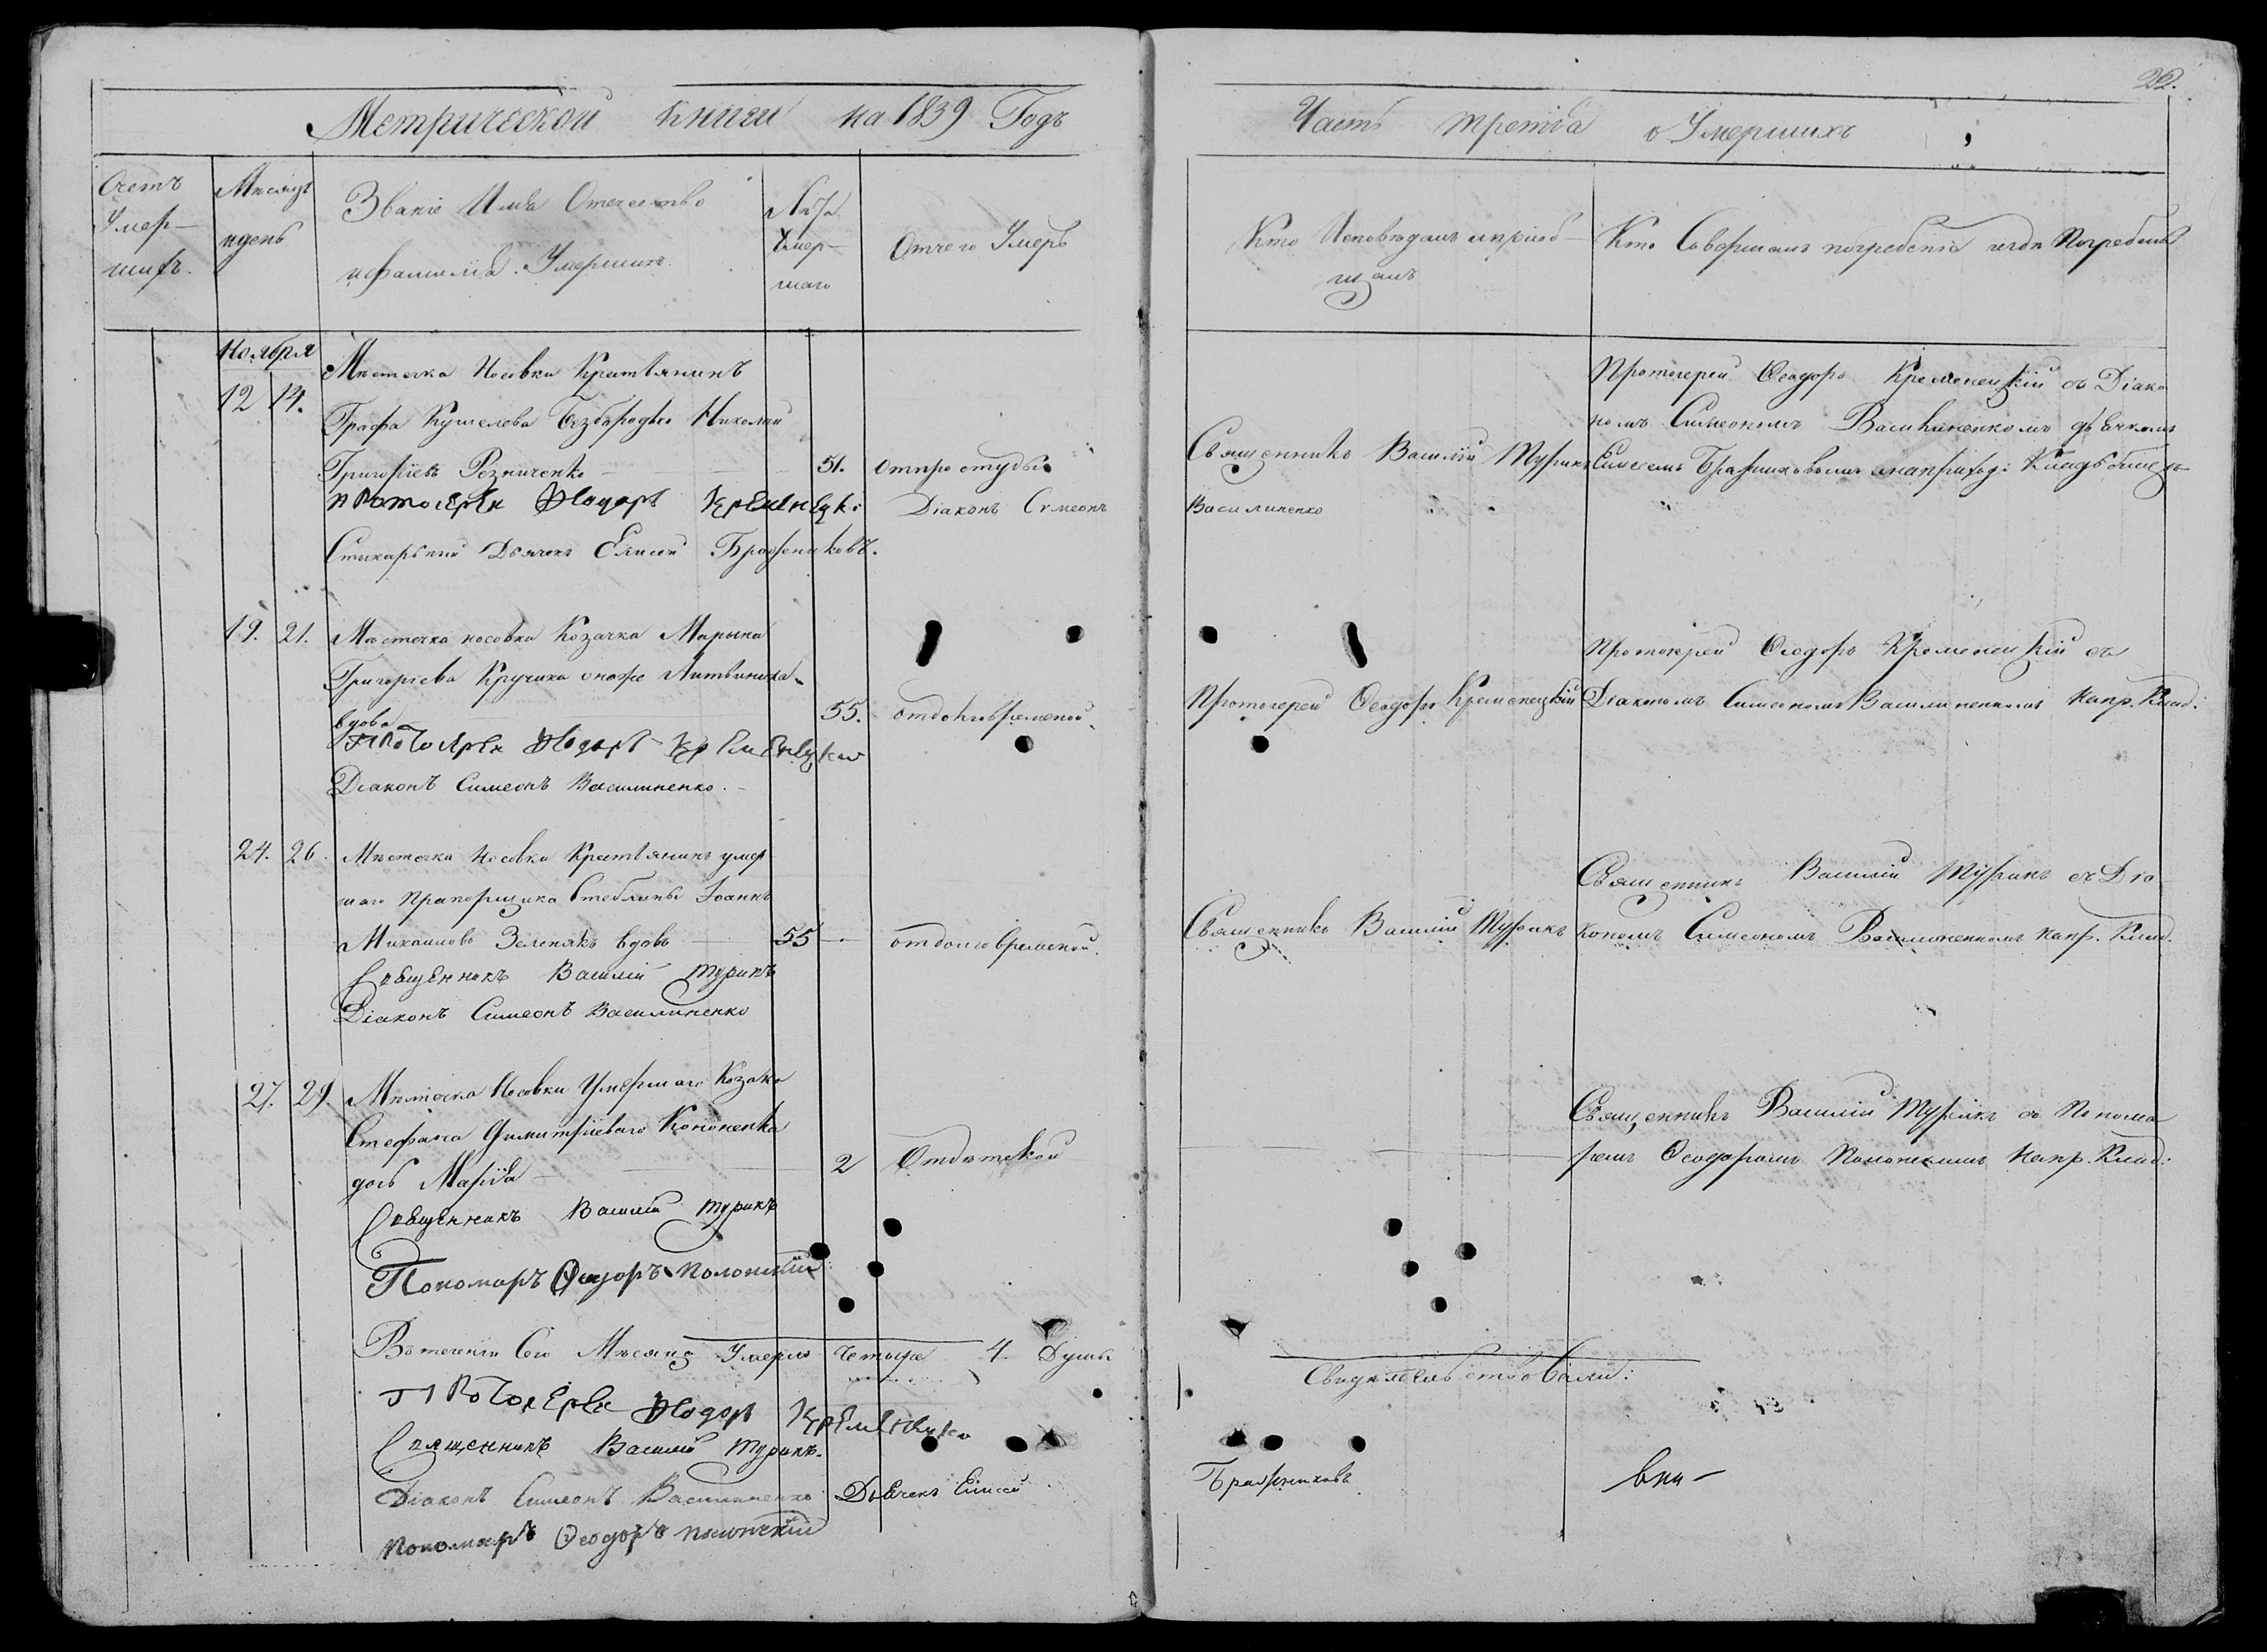 22.
Метрической книги на 1839 Годъ
Часть третія о Умершихъ
Счетъ Умер-шихъ.
Месяцъ идень
Званіе Имя Отечество ифамилія Умершихъ
Лѣта Умер-шаго
Отчего Умеръ
Кто Исповѣдалъ ипріоб-щалъ
Кто Совершалъ погребеніе игдѣ Погребенъ
Ноября
12 14. Мѣстечка Носовки Крестьянинъ
Графа Кушелева Безбородько Николай
Григоріевъ Резниченко 51. отпростуды
Протоіерей Ѳеодоръ Кременецкі
Діаконъ Сѵмеонъ Василиненко
Стихарьный Дьячокъ Елисей Бражниковъ.
Священникъ Василій Турикъ
Протоіерей Ѳеодоръ Кременецкій съ Діако
номъ Симеономъ Василиненкомъ дьячкомъ
Елисеемъ Бражниковымъ наприход: Кладбищѣ
19. 21. Мѣстечка носовки Козачка Марына
Григоріева Кручиха онаже Литвиниха
вдова 55. отдолговременной
Протоіерей Ѳеодоръ Кременецкій
Діаконъ Симеонъ Василиненко.
Протоіерей Ѳеодоръ Кременецкій
Протоіерей Ѳеодоръ Кременецкій съ
Діакономъ Симеономъ Василиненкомъ напр. Клад:
24. 26. Мѣстечка Носовки Крестьянинъ умер
шаго Прапорщика Стеблины Іоаннъ
Михаиловъ Зеленякъ вдовъ 55 отдолговременной.
Священникъ Василій Турикъ
Діаконъ Симеонъ Василиненко
Священникъ Василій Турикъ
Священникъ Василій Турикъ съ Діа
кономъ Симеономъ Василиненкомъ напр. Клад.
27. 29. Мѣстечка Носовки Умершаго Козака
Стефана Димитріеваго Кононенка
дочь Марія 2 Отдѣтской
Священникъ Василій Турикъ
Пономаръ Ѳеодоръ Полонскій
Священникъ Василій Турикъ съ Понома
ремъ Ѳеодоромъ Полонскимъ напр. Клад:
Втеченіи Сего Мѣсяца Умерло четыре 4 Душъ
Протоіерей Ѳеодоръ Кременецкій
Священникъ Василій Турикъ.
Діаконъ Симеонъ Василиненко Дьячекъ Елисей
Пономаръ Ѳеодоръ Полонскій
Свидѣтельствовали:
Бражниковъ